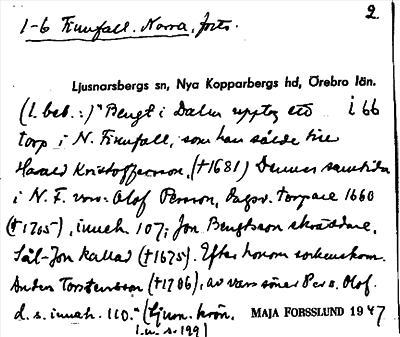 2.
1-6 Finnfall. Norra, forts.
Ljusnarsbergs sn, Nya Kopparbergs hd, Örebro län.
(1. beb.:) "Bengt i Dalen upptog ett i 66
torp i N. Finnfall, som han sålde till
Harald Kristoffersson, (†1681) Dennes samtida
i N. F. vore Olof Persson, dagsv. torpare 1660
(†1705), inneh. 107; Jon Bengtsson skräddare,
Sål-Jon kallad (†1675). Efter honom sockenskom.
Anders Torstensson (†1706), av vars söner Per o. Olof
d. s. inneh. 110." (Ljusn. krön.
1 s. 199)
MAJA FORSSLUND 1947